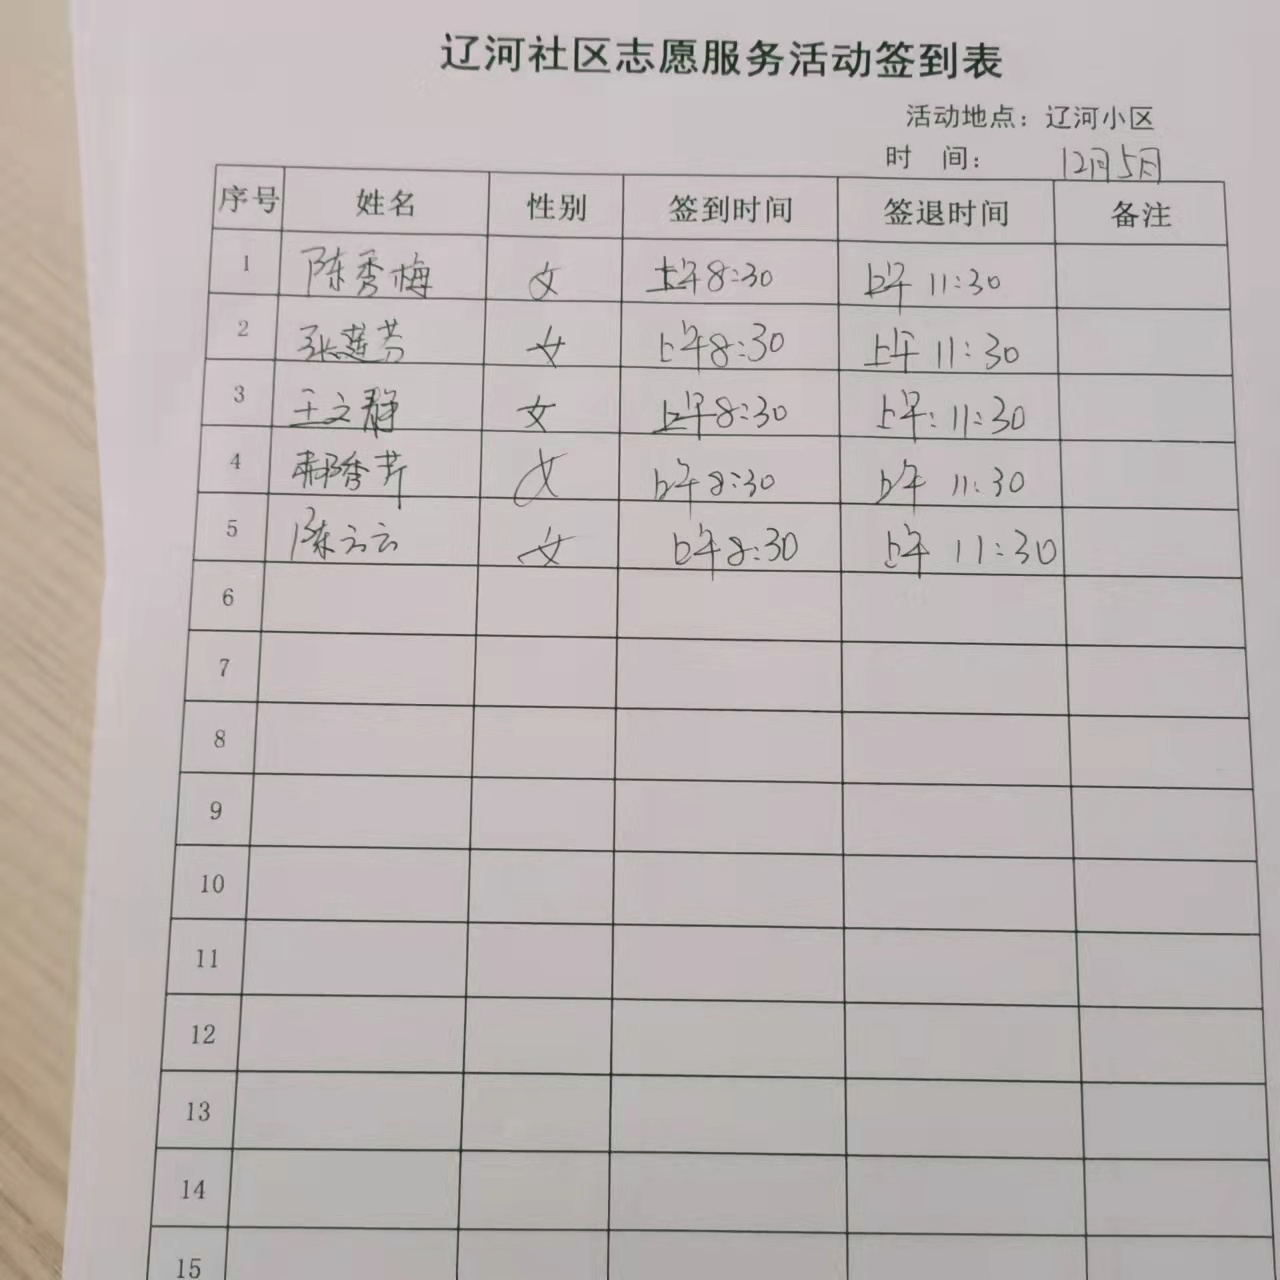 辽河社区志愿服务活动签到表
活动地点：辽河小区
时 间： 12月5日
序号 姓名 性别 签到时间 签退时间 备注
1 陈秀梅 女 上午8:30 上午 11:30
2 张莲芬 女 上午8:30 上午 11:30
3 王文静 女 上午8:30 上午: 11:30
4 郝秀芹 女 上午8:30 上午 11:30
5 陈云云 女 上午8:30 上午 11:30
6
7
8
9
10
11
12
13
14
15